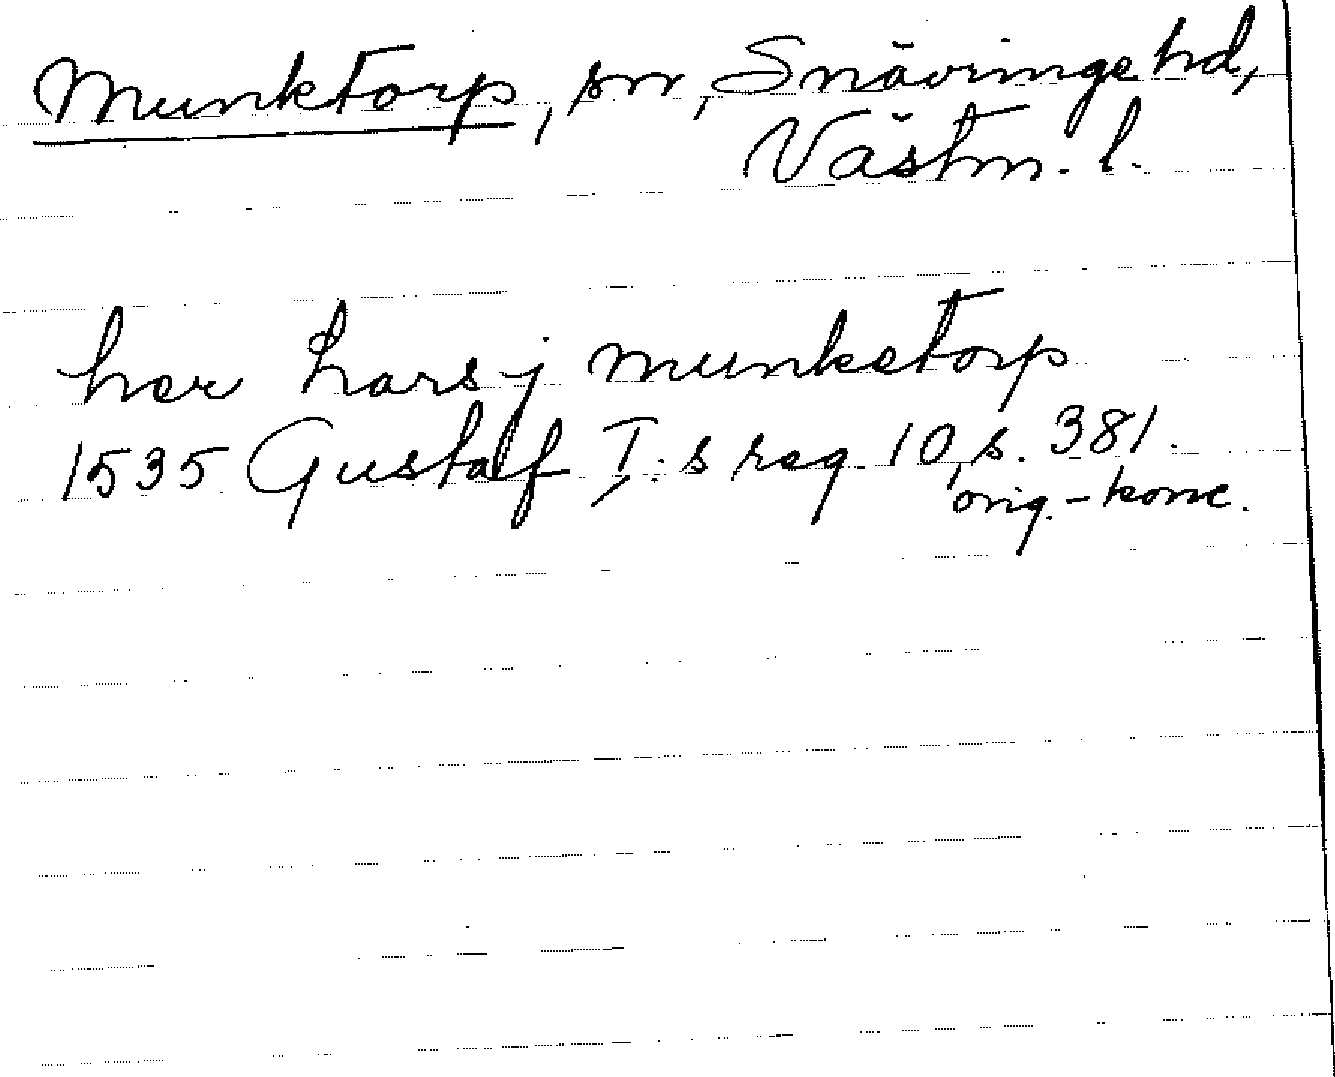 Munktorp, sn, Snävringe hd,
Västm. l.
her hars j munketorp
1535 Gustaf I:s reg. 10, s. 381.
orig.-konc.